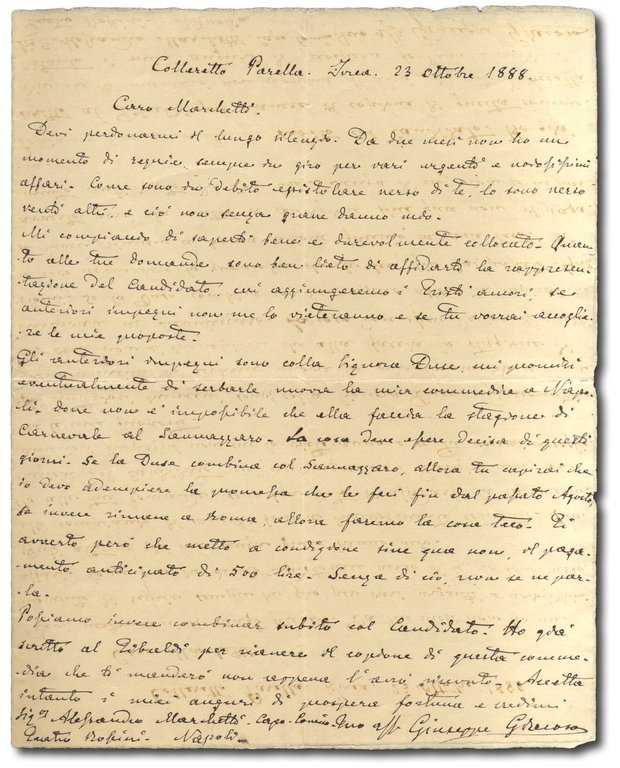 Colleretto Parella. Ivrea. 23 Ottobre 1888.
Caro Marchetti.
Devi perdonarmi il lungo silenzio. Da due mesi non ho un
momento di requie, sempre in giro per vari urgenti e noiosissimi
affari. Come sono in debito epistolare verso di te, lo sono verso
venti altri, e ciò non senza grave danno mio.
Mi compiaccio di saperti bene e durevolmente collocato. Quan-
to alle tue domande, sono ben lieto di affidarti la rappresen-
tazione del Candidato, cui aggiungeremo i Tristi amori, se
anteriori impegni non me lo vieteranno e se tu vorrai accoglie-
re le mie proposte.
Gli anteriori impegni sono colla Signora Duse, cui promisi
eventualmente di serbarle nuova la mia commedia a Napo-
li, dove non è impossibile che ella faccia la stagione di
Carnevale al Sannazzaro. La cosa deve essere decisa di questi
giorni. Se la Duse combina col Sannazzaro, allora tu capirai che
io devo adempiere la promessa che le feci fin dal passato Agosto,
se invece rimane a Roma, allora faremo la cosa teco. Ti
avverto però che metto a condizione sine qua non, il paga-
mento anticipato di 500 lire. Senza di ciò, non se ne par-
la.
Possiamo invece combinar subito col Candidato. Ho già
scritto al Tibaldi per riavere il copione di questa comme-
dia che ti manderò non appena l'avrò ricevuto. Accetta
intanto i miei auguri di prospera fortuna e credimi
Sigr Alessandro Marchetti. Capo-Comico Tuo aff. Giuseppe Giacosa
Teatro Rossini. Napoli.